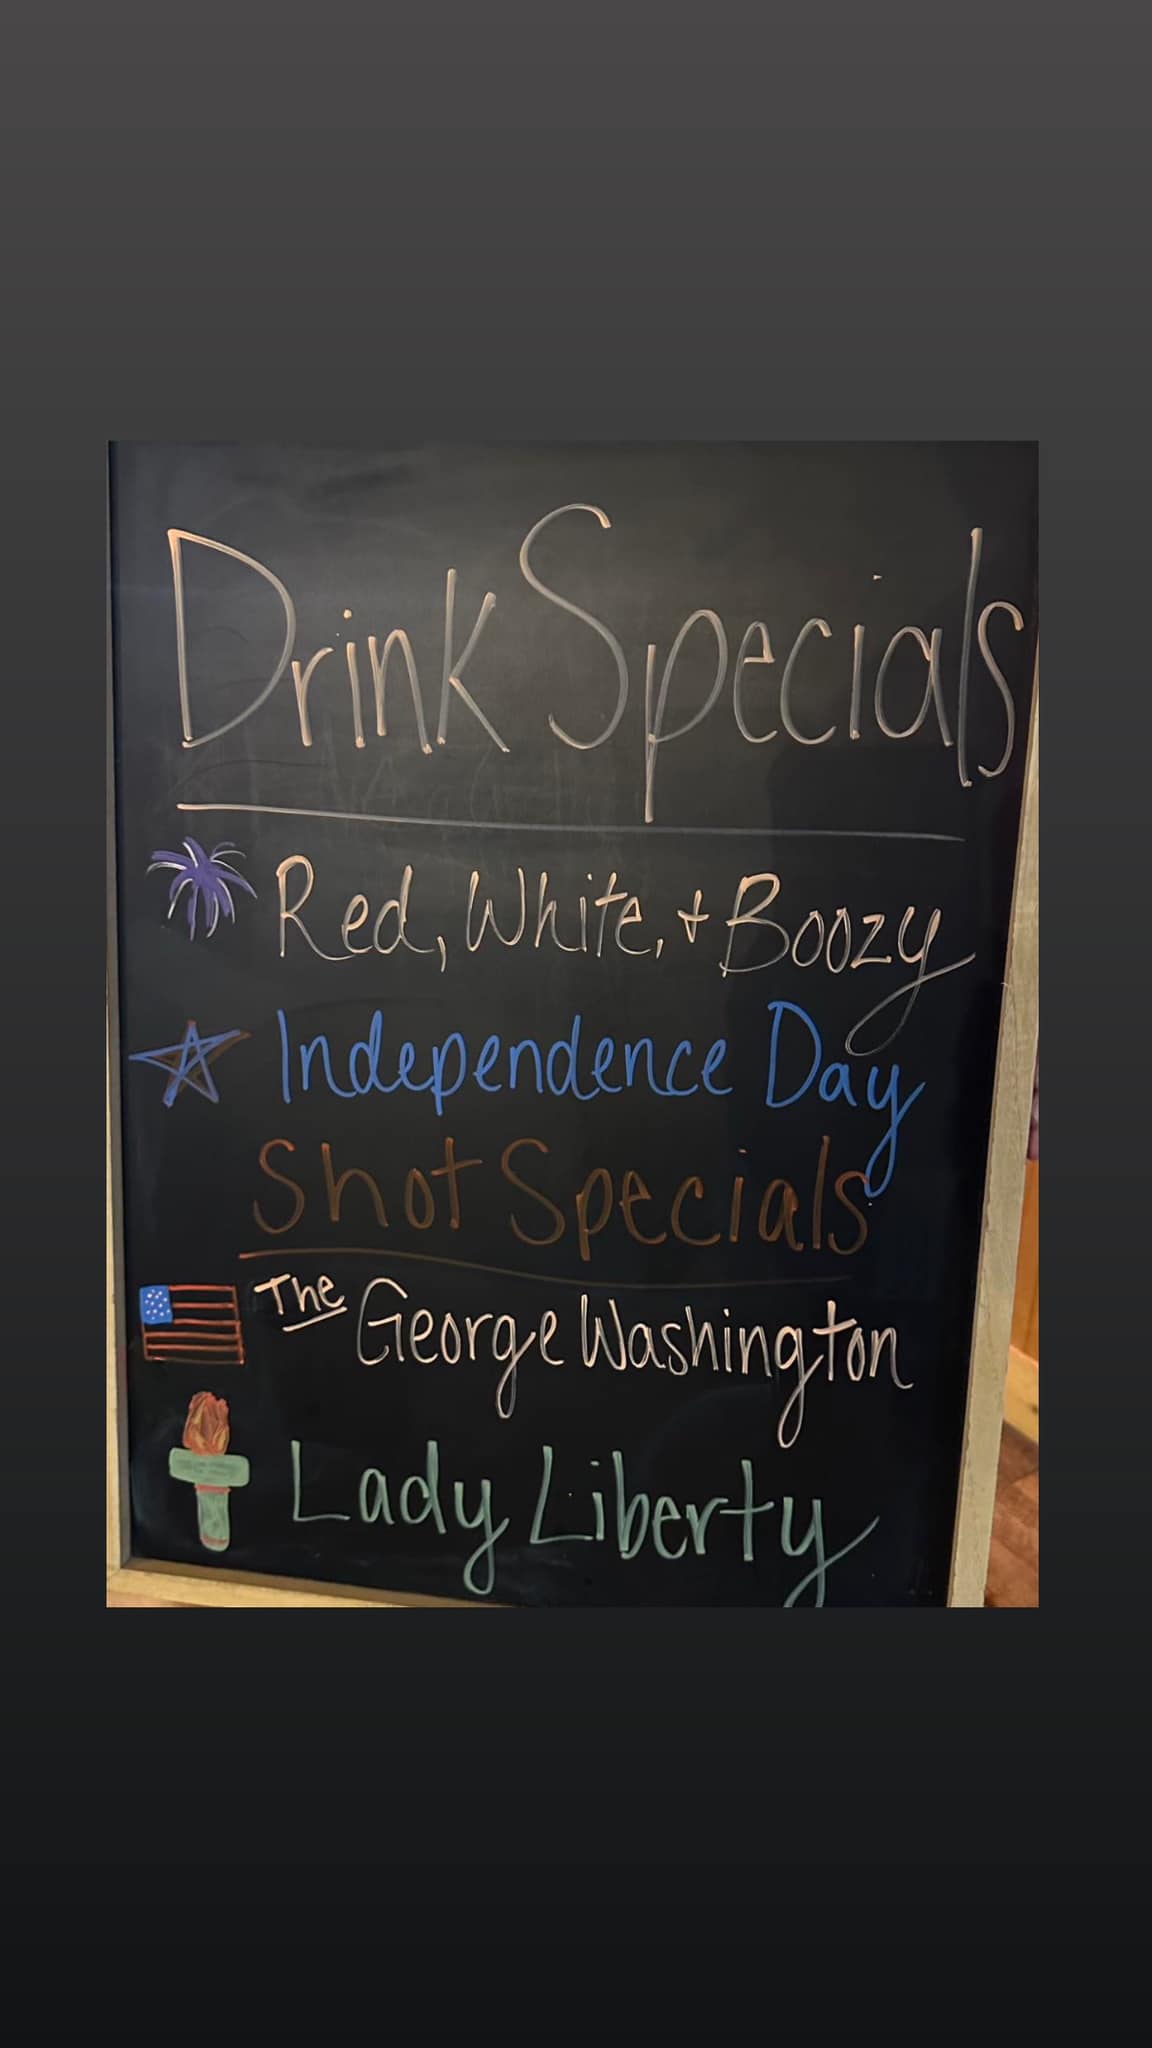 Drink Specials
Red, White, + Boozy
Independence Day
Shot Specials
The George Washington
Lady Liberty